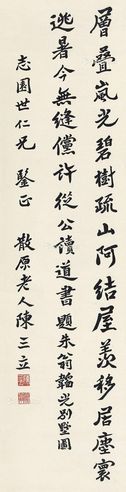 層疊嵐光碧樹疏山阿結屋羨移居塵寰
逃暑今無縫儻許從公讀道書題朱翁韜光別墅圖
志園世仁兄 鑒正 散原老人陳三立